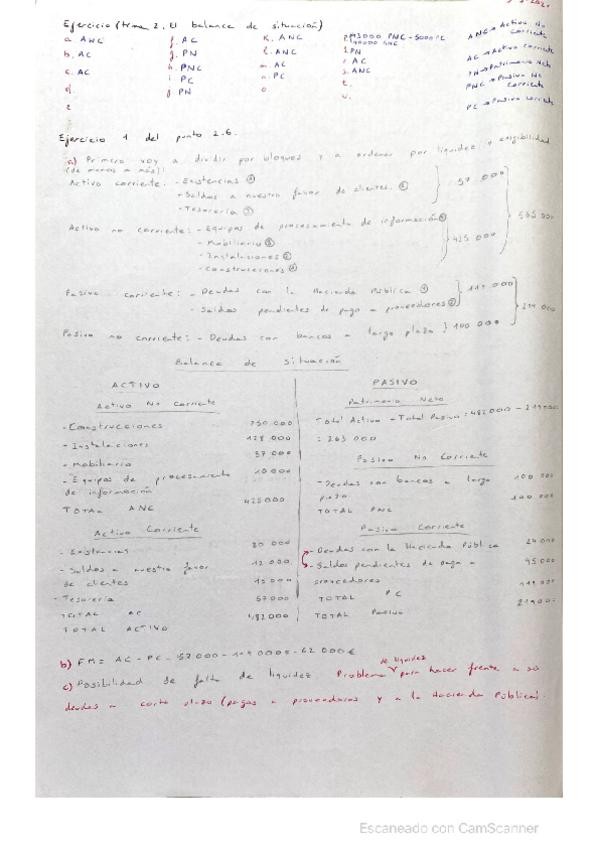 Ejercicio (tema 2. El balance de situación)
a. ANC f. AC K. ANC
b. AC g. PN l. ANC 1 PN
c. AC h. PNC m. AC r AC
d. i PC n. PC s. ANC
e j PN o t.
u.
ANC → Activo No Corriente
AC → Activo corriente
PN → Patrimonio Neto
PNC → Pasivo No Corriente
PC → Pasivo corriente
Ejercicio 1 del punto 2.6.
a) Primero voy a dividir por bloques y a ordenar por liquidez y exigibilidad
(de menos a más):
Activo corriente: - Existencias
- Saldos a nuestro favor de clientes. 57 000
- Tesorería
Activo no corriente: - Equipos de procesamiento de información
- Mobiliario 425 000
- Instalaciones
- Construcciones
Pasivo corriente: - Deudas con la Hacienda Pública
- Saldos pendientes de pago a proveedores
Pasivo no corriente: - Deudas con bancos a largo plazo } 100 000
Balance de situación
ACTIVO
Activo No Corriente
- Construcciones 250 000
- Instalaciones 128 000
- Mobiliario 37 000
- Equipos de procesamiento 10 000
de información
TOTAL ANC 425 000
Activo Corriente
- Existencias 30 000
- Saldos a nuestro favor 12 000
de clientes
- Tesorería 15 000
TOTAL AC 57 000
TOTAL ACTIVO 482 000
PASIVO
Patrimonio Neto
Total Activo - Total Pasivo = 482 000 - 219 000
= 263 000
Pasivo No Corriente
- Deudas con bancos a largo 100 000
plazo
TOTAL PNC 100 000
Pasivo Corriente
- Deudas con la Hacienda Pública 24 000
- Saldos pendientes de pago a 95 000
proveedores
TOTAL PC 119 000
TOTAL Pasivo 219 000
b) FM = AC - PC = 57 000 - 119 000 = - 62 000 €
c) Posibilidad de falta de liquidez Problema de liquidez para hacer frente a sus
deudas a corto plazo (pagos a proveedores y a la Hacienda Pública).
Escaneado con CamScanner